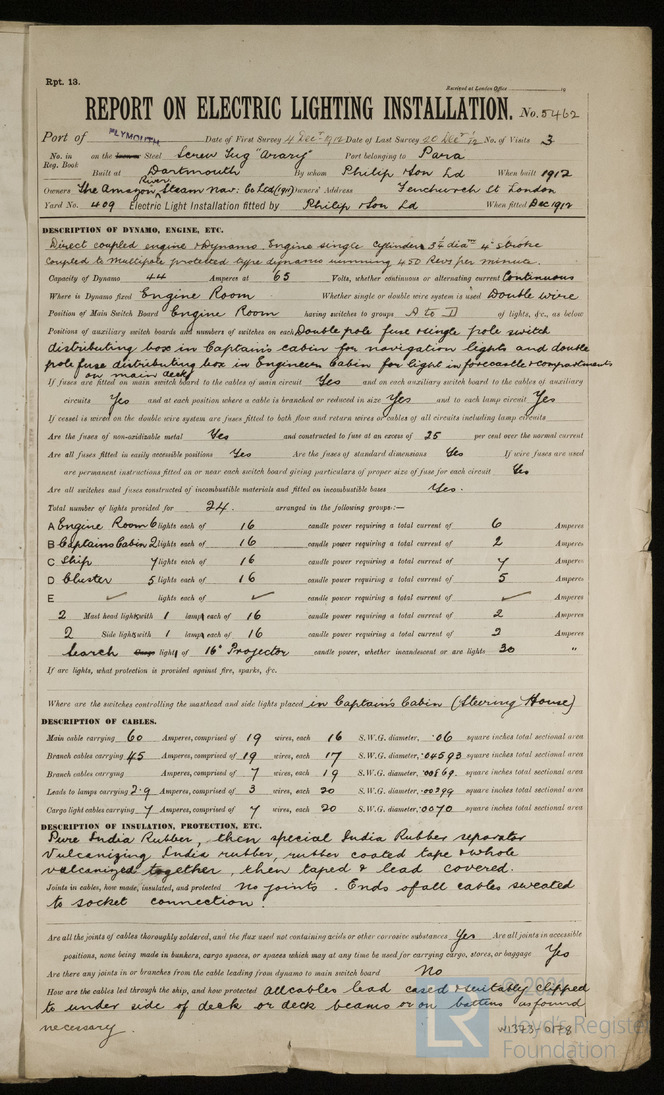 Rpt. 13.
Received at London Office 19
REPORT ON ELECTRIC LIGHTING INSTALLATION. No. 5462
Port of PLYMOUTH Date of First Survey 4 Decr 1912 Date of Last Survey 20 Decr '12 No. of Visits 3
No. in Reg. Book on the Steel Screw Tug "Arary" Port belonging to Para
Built at Dartmouth By whom Philip & Son Ld When built 1912
Owners The Amazon River Steam Nav: Co Ld (1911) Owners' Address Fenchurch St London
Yard No. 409 Electric Light Installation fitted by Philip & Son Ld When fitted Dec 1912
DESCRIPTION OF DYNAMO, ENGINE, ETC.
Direct coupled engine & Dynamo. Engine single cylinder diar 4" stroke
coupled to Multipole protected type dynamo running 450 Revs per minute.
Capacity of Dynamo 44 Amperes at 65 Volts, whether continuous or alternating current Continuous
Where is Dynamo fixed Engine Room Whether single or double wire system is used Double wire
Position of Main Switch Board Engine Room having switches to groups A to D of lights, &c., as below
Positions of auxiliary switch boards and numbers of switches on each Double pole fuse & single pole switch
distributing box in Captain's cabin for navigation lights and double
pole fuse distributing box in Engineers Cabin for light in forecastle & compartments
on main deck
If fuses are fitted on main switch board to the cables of main circuit Yes and on each auxiliary switch board to the cables of auxiliary
circuits Yes and at each position where a cable is branched or reduced in size Yes and to each lamp circuit Yes
If vessel is wired on the double wire system are fuses fitted to both flow and return wires or cables of all circuits including lamp circuits
Are the fuses of non-oxidizable metal Yes and constructed to fuse at an excess of 25 per cent over the normal current
Are all fuses fitted in easily accessible positions Yes Are the fuses of standard dimensions Yes If wire fuses are used
are permanent instructions fitted on or near each switch board giving particulars of proper size of fuse for each circuit Yes
Are all switches and fuses constructed of incombustible materials and fitted on incombustible bases Yes.
Total number of lights provided for 24. arranged in the following groups:—
A Engine Room 6 lights each of 16 candle power requiring a total current of 6 Amperes
B Captains Cabin 2 lights each of 16 candle power requiring a total current of 2 Amperes
C Ship 7 lights each of 16 candle power requiring a total current of 7 Amperes
D Cluster 5 lights each of 16 candle power requiring a total current of 5 Amperes
E ✓ lights each of ✓ candle power requiring a total current of ✓ Amperes
2 Mast head lights with 1 lamp each of 16 candle power requiring a total current of 2 Amperes
2 Side lights with 1 lamp each of 16 candle power requiring a total current of 2 Amperes
Search Cargo light of 16" Projector candle power, whether incandescent or arc lights 30 "
If arc lights, what protection is provided against fire, sparks, &c.
Where are the switches controlling the masthead and side lights placed in Captain's Cabin (Steering House)
DESCRIPTION OF CABLES.
Main cable carrying 60 Amperes, comprised of 19 wires, each 16 S.W.G. diameter, .06 square inches total sectional area
Branch cables carrying 45 Amperes, comprised of 19 wires, each 17 S.W.G. diameter, .04593 square inches total sectional area
Branch cables carrying Amperes, comprised of 7 wires, each 19 S.W.G. diameter, .00869. square inches total sectional area
Leads to lamps carrying 2.9 Amperes, comprised of 3 wires, each 20 S.W.G. diameter, .00299 square inches total sectional area
Cargo light cables carrying 7 Amperes, comprised of 7 wires, each 20 S.W.G. diameter, .0070 square inches total sectional area
DESCRIPTION OF INSULATION, PROTECTION, ETC.
Pure India Rubber, then special India Rubber separator
Vulcanizing India rubber, rubber coated tape & whole
vulcanized together, then taped & lead covered.
Joints in cables, how made, insulated, and protected No joints. Ends of all cables sweated
to socket connection.
Are all the joints of cables thoroughly soldered, and the flux used not containing acids or other corrosive substances Yes Are all joints in accessible
positions, none being made in bunkers, cargo spaces, or spaces which may at any time be used for carrying cargo, stores, or baggage Yes
Are there any joints in or branches from the cable leading from dynamo to main switch board No
How are the cables led through the ship, and how protected all cables lead cased & suitably clipped
to under side of deck or deck beams or on battens as found
necessary.
© 2021
LR Lloyd's Register
Foundation
W1373-0178